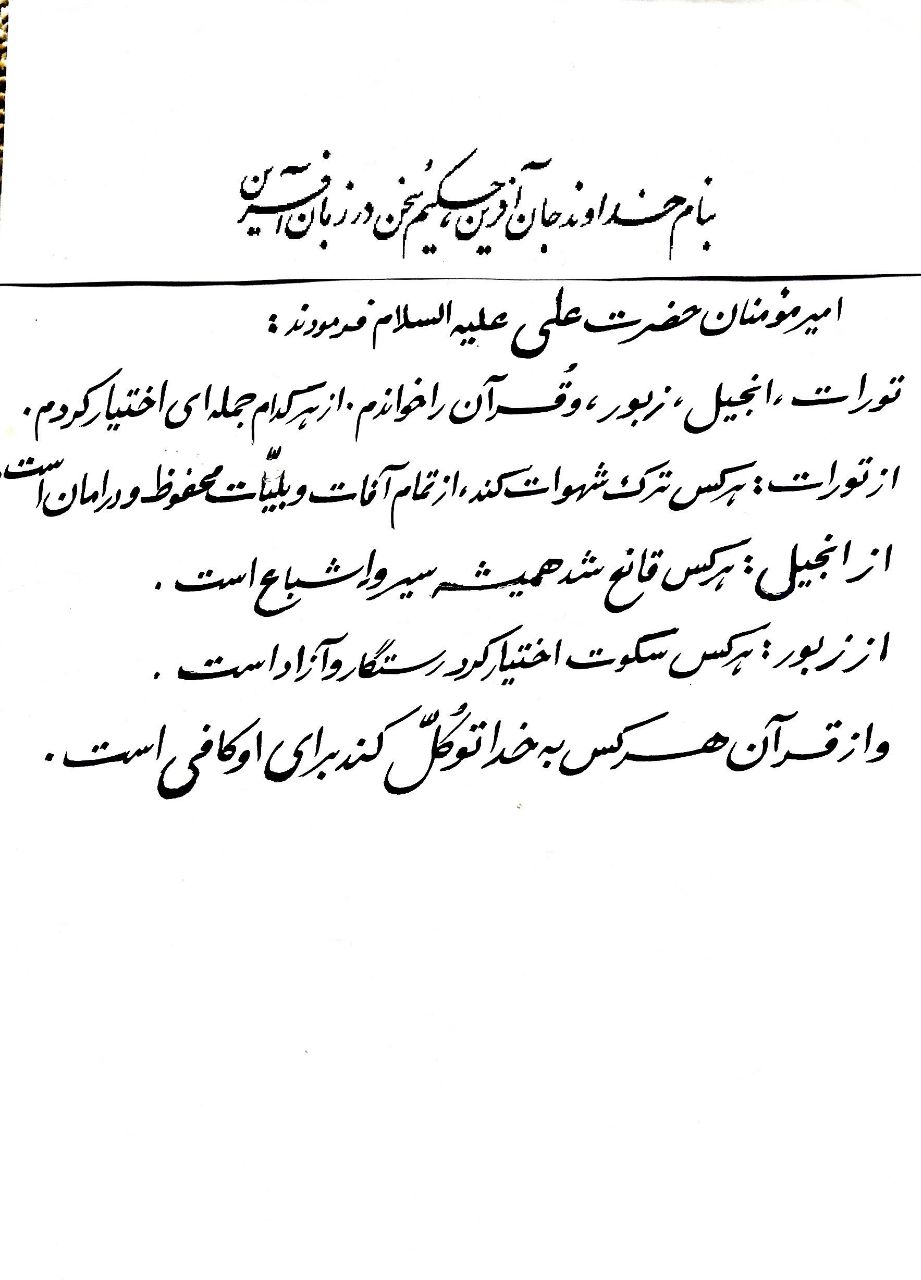 بنام خداوند جان آفرین، حکیم سُخن در زبان آفرین
امیر مؤمنان حضرت علی علیه السلام فرمودند :
تورات ، انجیل ، زبور ، و قُرآن را خواندم . از هر کدام جمله ای اختیار کردم .
از تورات : هر کس ترک شهوات کند ، از تمام آفات و بلیّات محفوظ و در امان است .
از انجیل : هر کس قانع شد همیشه سیر و اشباع است .
از زبور : هر کس سکوت اختیار کرد رستگار و آزاد است .
و از قرآن هر کس به خدا توکُّل کند برای او کافی است .